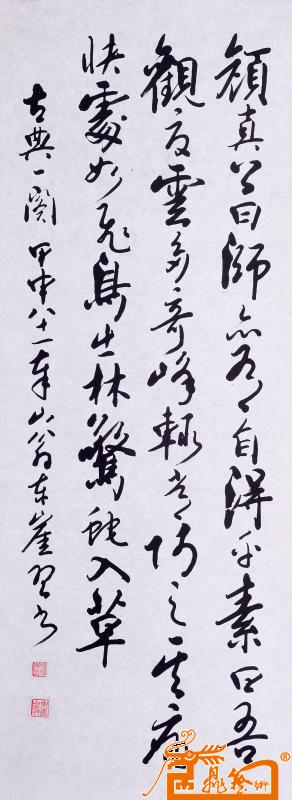 顔真公曰師亦有自得乎素曰吾
觀夏雲多奇峰輒常師之其痛
快處如飛鳥出林驚蛇入草
古典一阕 甲申八十一 山翁东崖书